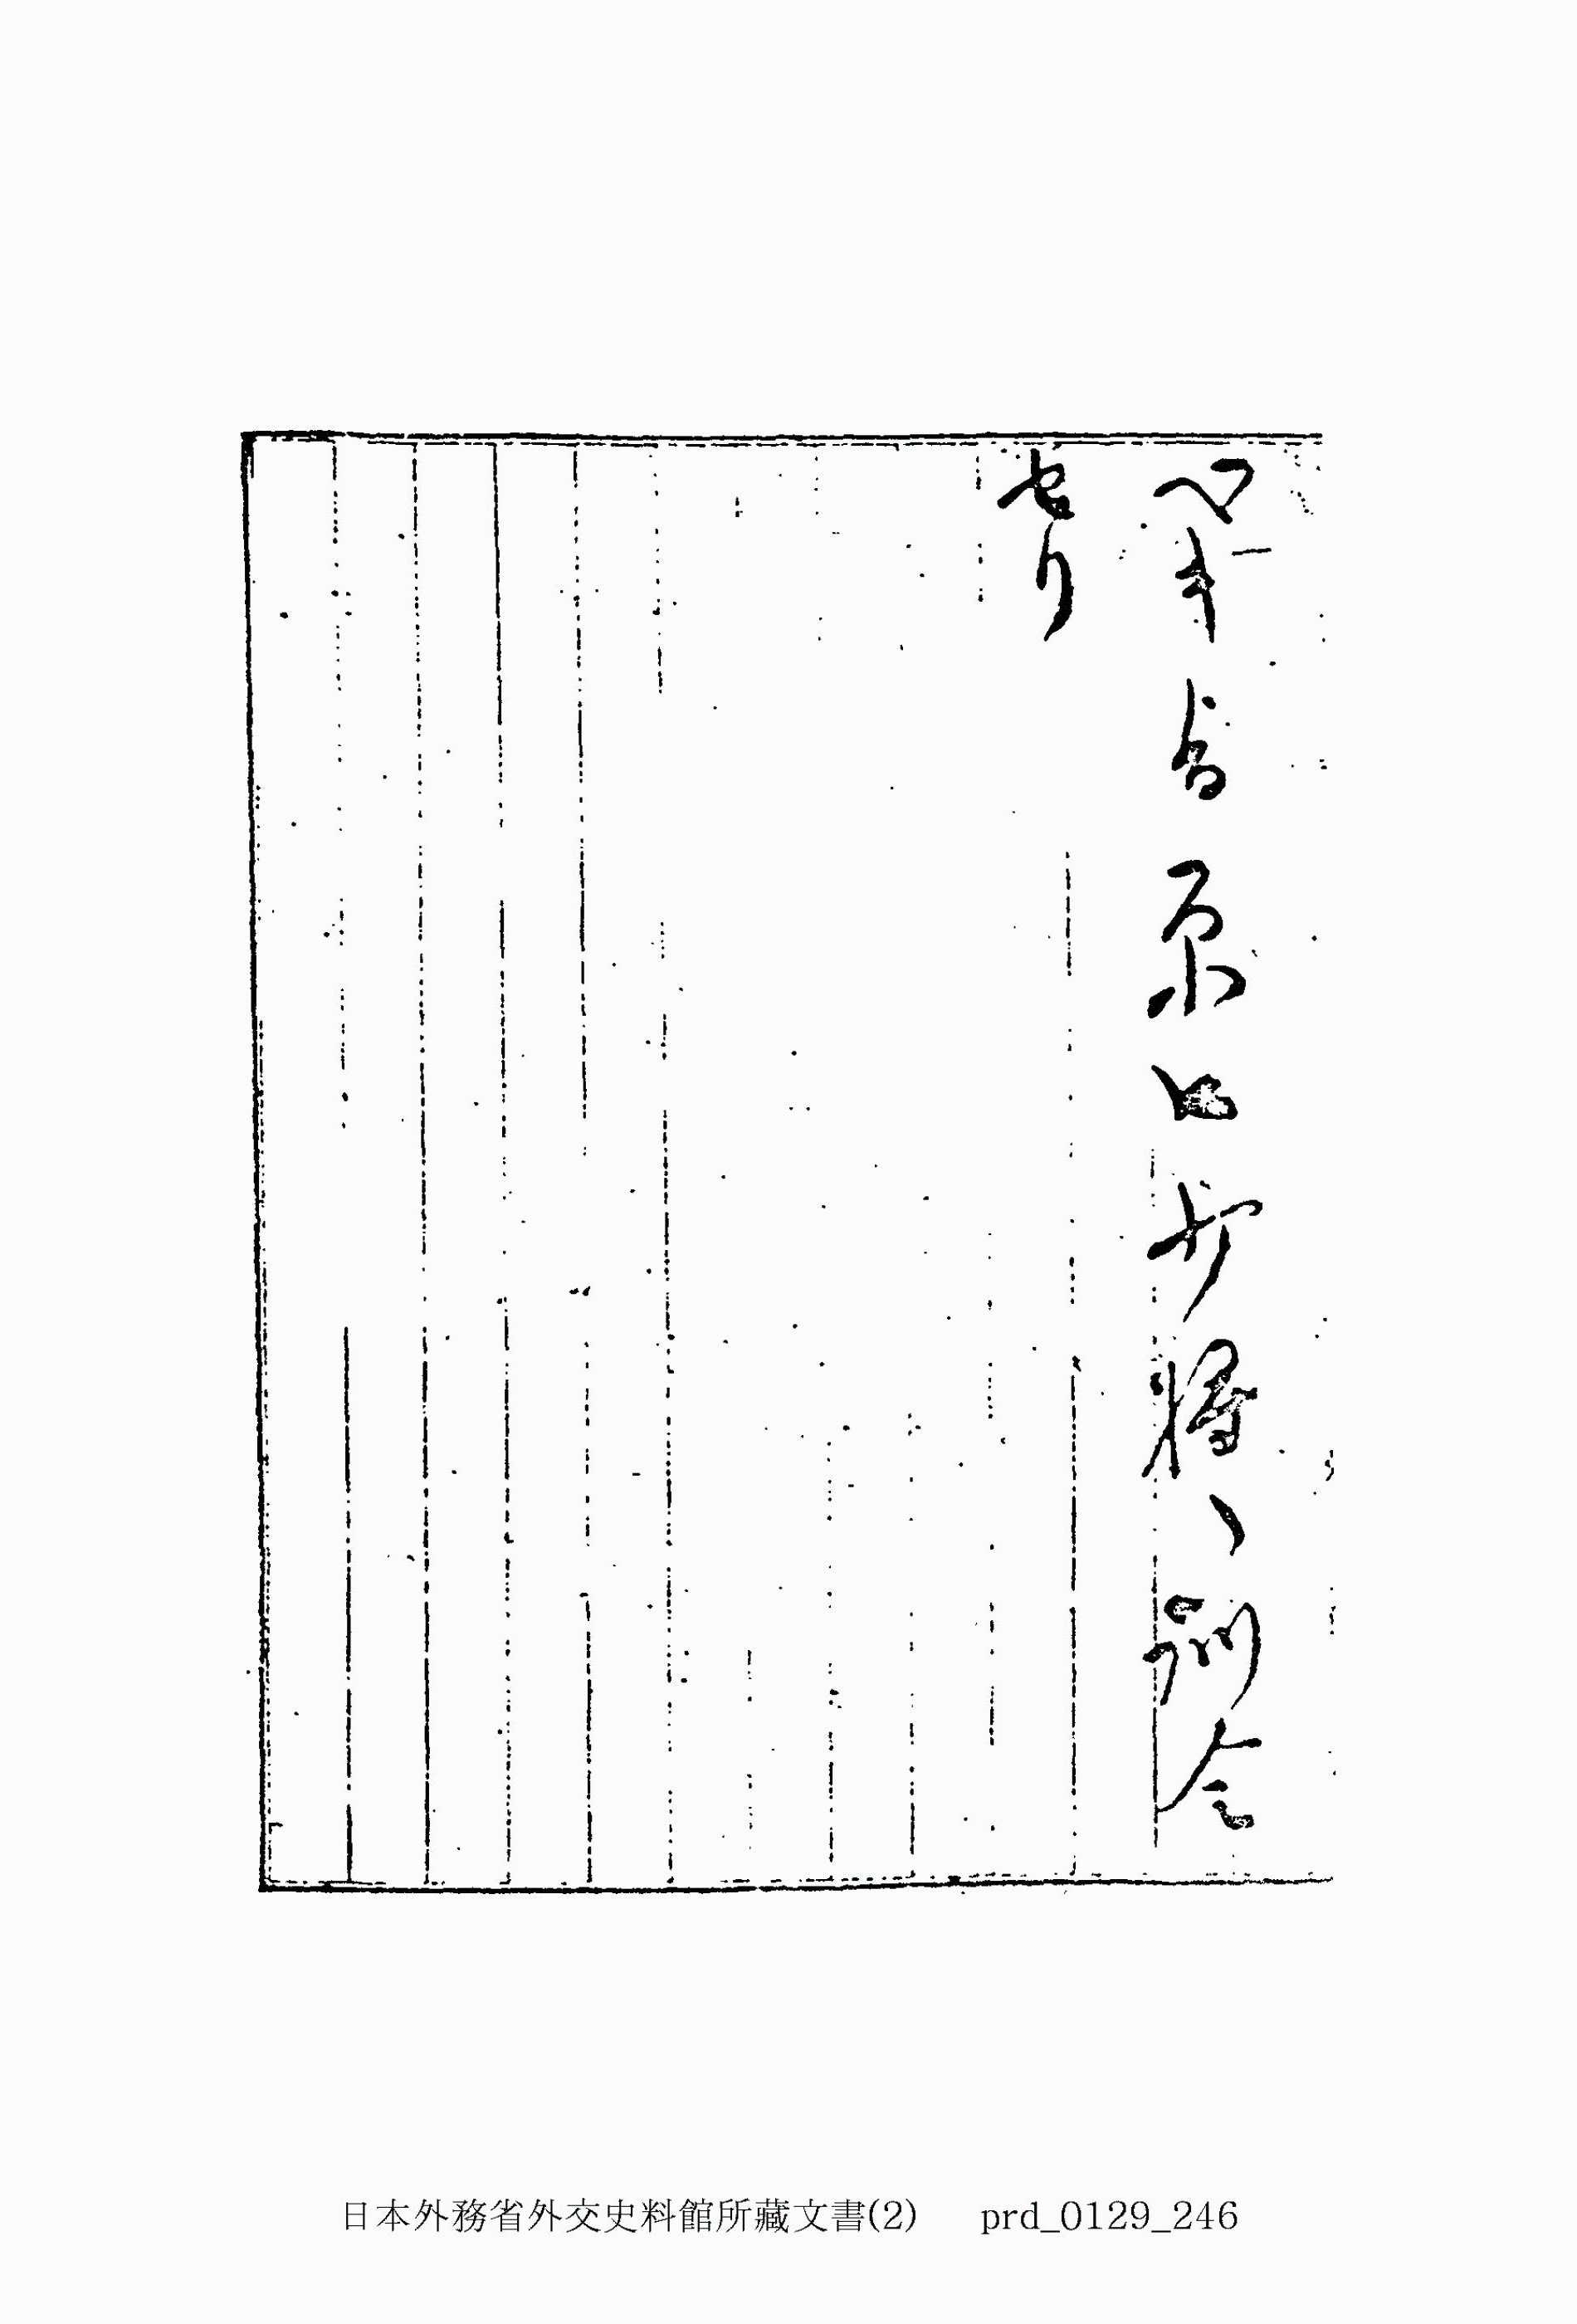 ヘキ旨原口少将ヘ訓令
セリ
日本外務省外交史料館所藏文書(2) prd_0129_246